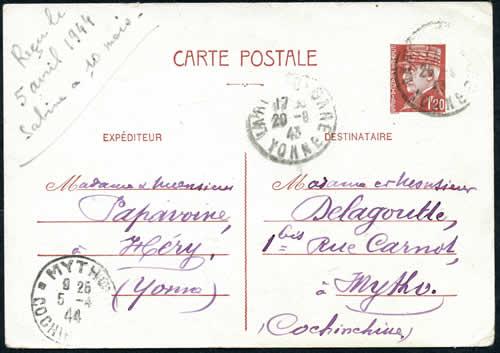 Reçu le
5 avril 1944
Sabine a 10 mois.
CARTE POSTALE
1f20
17
20-8
43
YONNE
EXPÉDITEUR
DESTINATAIRE
Madame & Monsieur
Papavoine,
à Héry,
(Yonne)
Madame et Monsieur
Delagoutte,
1bis Rue Carnot,
à Mytho.
(Cochinchine)
MYTHO
9 25
5-4
44
COCHIN